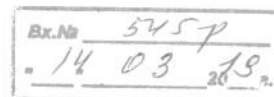 Вх.№ 545р
" 14 " 03 2019 г.